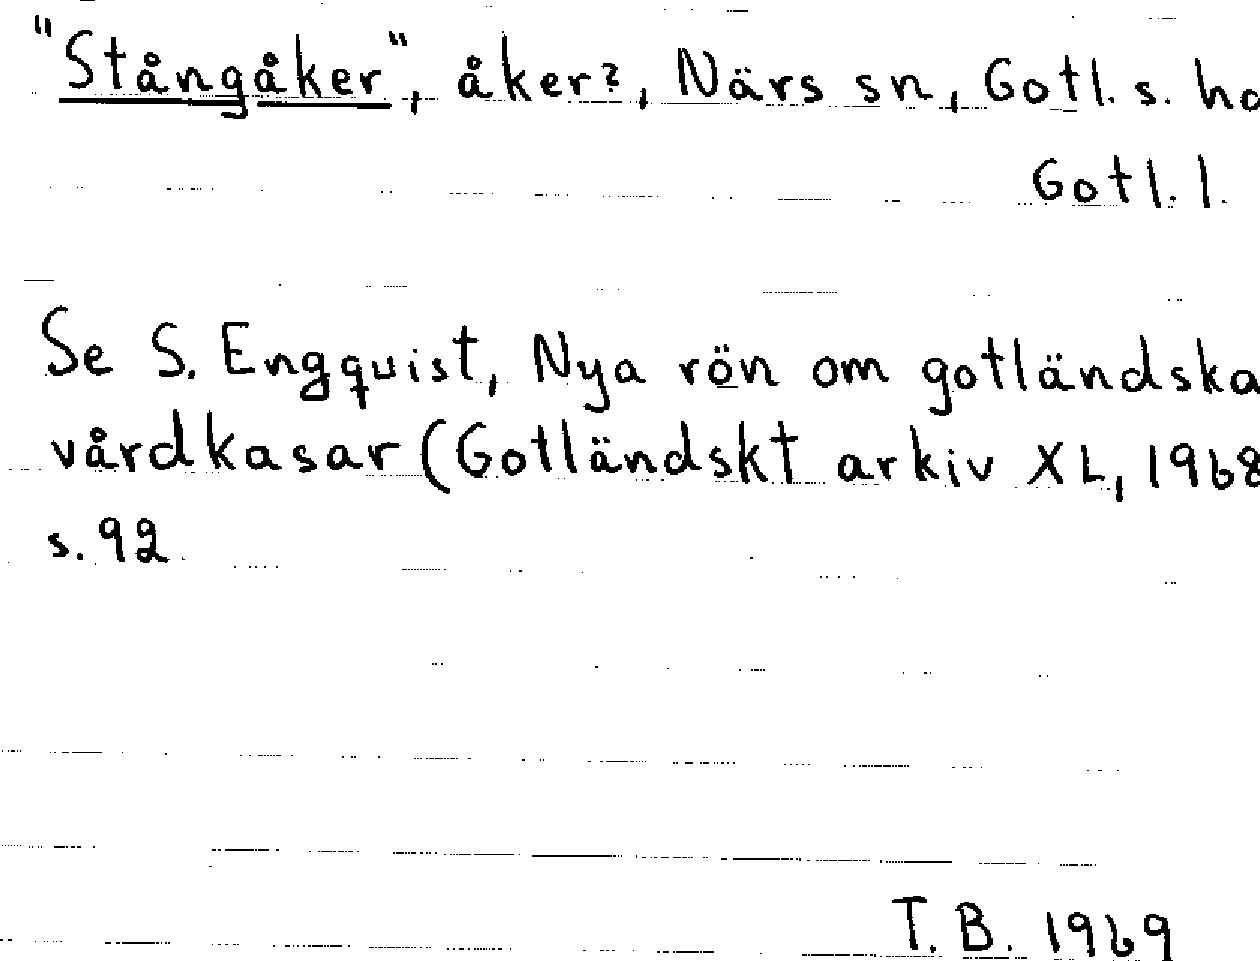 "Stångåker", åker?, Närs sn, Gotl. s. hd
Gotl. l.
Se S. Engquist, Nya rön om gotländska
vårdkasar (Gotländskt arkiv XL, 1968
s. 92
T. B. 1969